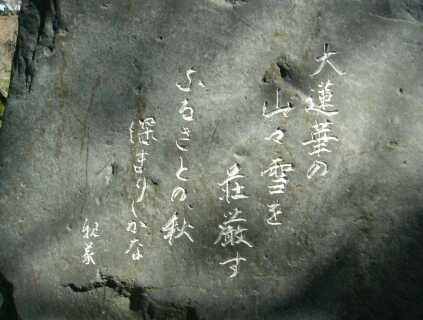 大蓮華の
山々雪を
荘厳す
ふるさとの秋
深まりしかな